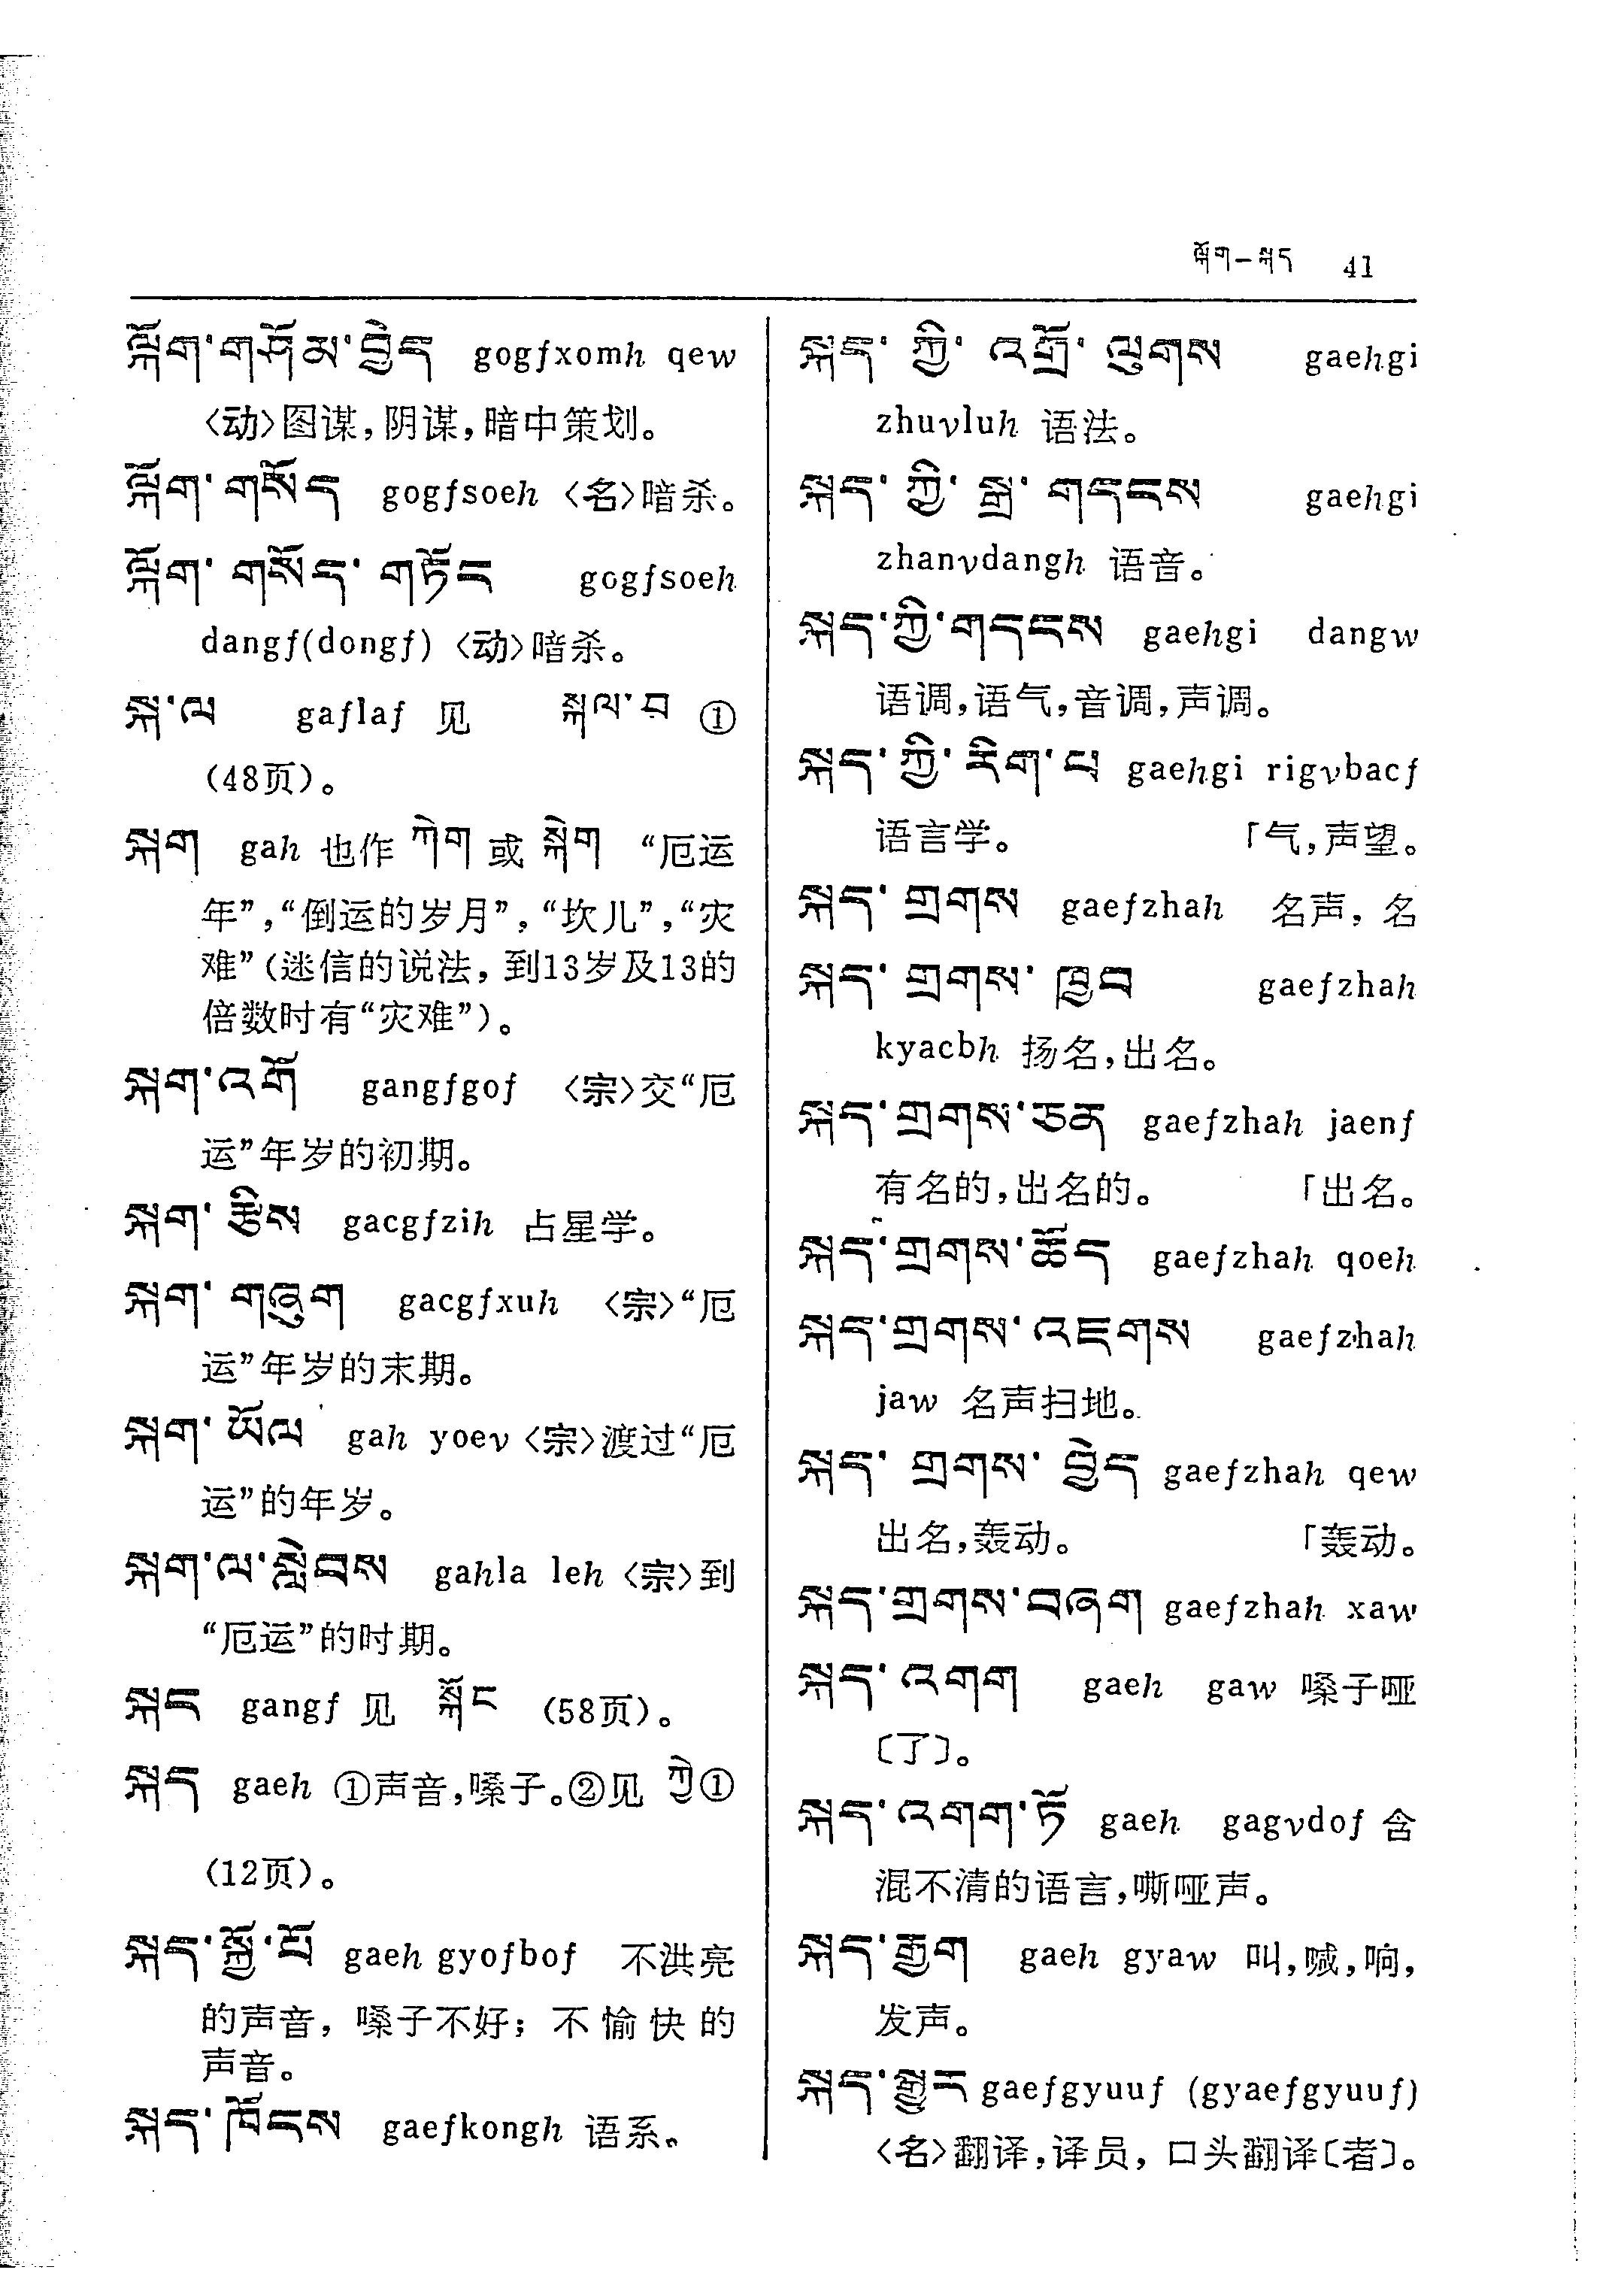 ལྐོག–སྐད 41
ལྐོག་གཤོམ་བྱེད gogfxomh qew
〈动〉图谋,阴谋,暗中策划。
ལྐོག་གསོད gogfsoeh 〈名〉暗杀。
ལྐོག་གསོད་གཏོང gogfsoeh
dangf(dongf) 〈动〉暗杀。
སྐ་ལ gaflaf 见 སྐལ་བ ①
(48页)。
སྐག gah 也作 ཀེག 或 སྐེག “厄运
年”,“倒运的岁月”,“坎儿”,“灾
难”(迷信的说法, 到13岁及13的
倍数时有“灾难”)。
སྐག་འགོ gangfgof 〈宗〉交“厄
运”年岁的初期。
སྐག་རྩིས gacgfzih 占星学。
སྐག་གཞུག gacgfxuh 〈宗〉“厄
运”年岁的末期。
སྐག་ཡོལ gah yoev 〈宗〉渡过“厄
运”的年岁。
སྐག་ལ་སླེབས gahla leh 〈宗〉到
“厄运”的时期。
སྐང gangf 见 སྐོང (58页)。
སྐད gaeh ①声音,嗓子。②见 ཀྱེ①
(12页)。
སྐད་སྐྱོ་པོ gaeh gyofbof 不洪亮
的声音, 嗓子不好; 不愉快的
声音。
སྐད་ཁོངས gaefkongh 语系。
སྐད་ཀྱི་འགྲོ་ལུགས gaehgi
zhuvluh 语法。
སྐད་ཀྱི་སྒྲ་གདངས gaehgi
zhanvdangh 语音。
སྐད་ཀྱི་གདངས gaehgi dangw
语调,语气,音调,声调。
སྐད་ཀྱི་རིག་པ gaehgi rigvbacf
语言学。 「气,声望。
སྐད་གྲགས gaefzhah 名声, 名
སྐད་གྲགས་ཁྱབ gaefzhah
kyacbh 扬名,出名。
སྐད་གྲགས་ཅན gaefzhah jaenf
有名的,出名的。 「出名。
སྐད་གྲགས་ཆོད gaefzhah qoeh
སྐད་གྲགས་འཇགས gaefzhah
jaw 名声扫地。
སྐད་གྲགས་བྱེད gaefzhah qew
出名,轰动。 「轰动。
སྐད་གྲགས་བཞག gaefzhah xaw
སྐད་འགག gaeh gaw 嗓子哑
〔了〕。
སྐད་འགག་ཏོ gaeh gagvdof 含
混不清的语言,嘶哑声。
སྐད་རྒྱག gaeh gyaw 叫,喊,响,
发声。
སྐད་སྒྱུར gaefgyuuf (gyaefgyuuf)
〈名〉翻译,译员, 口头翻译〔者〕。